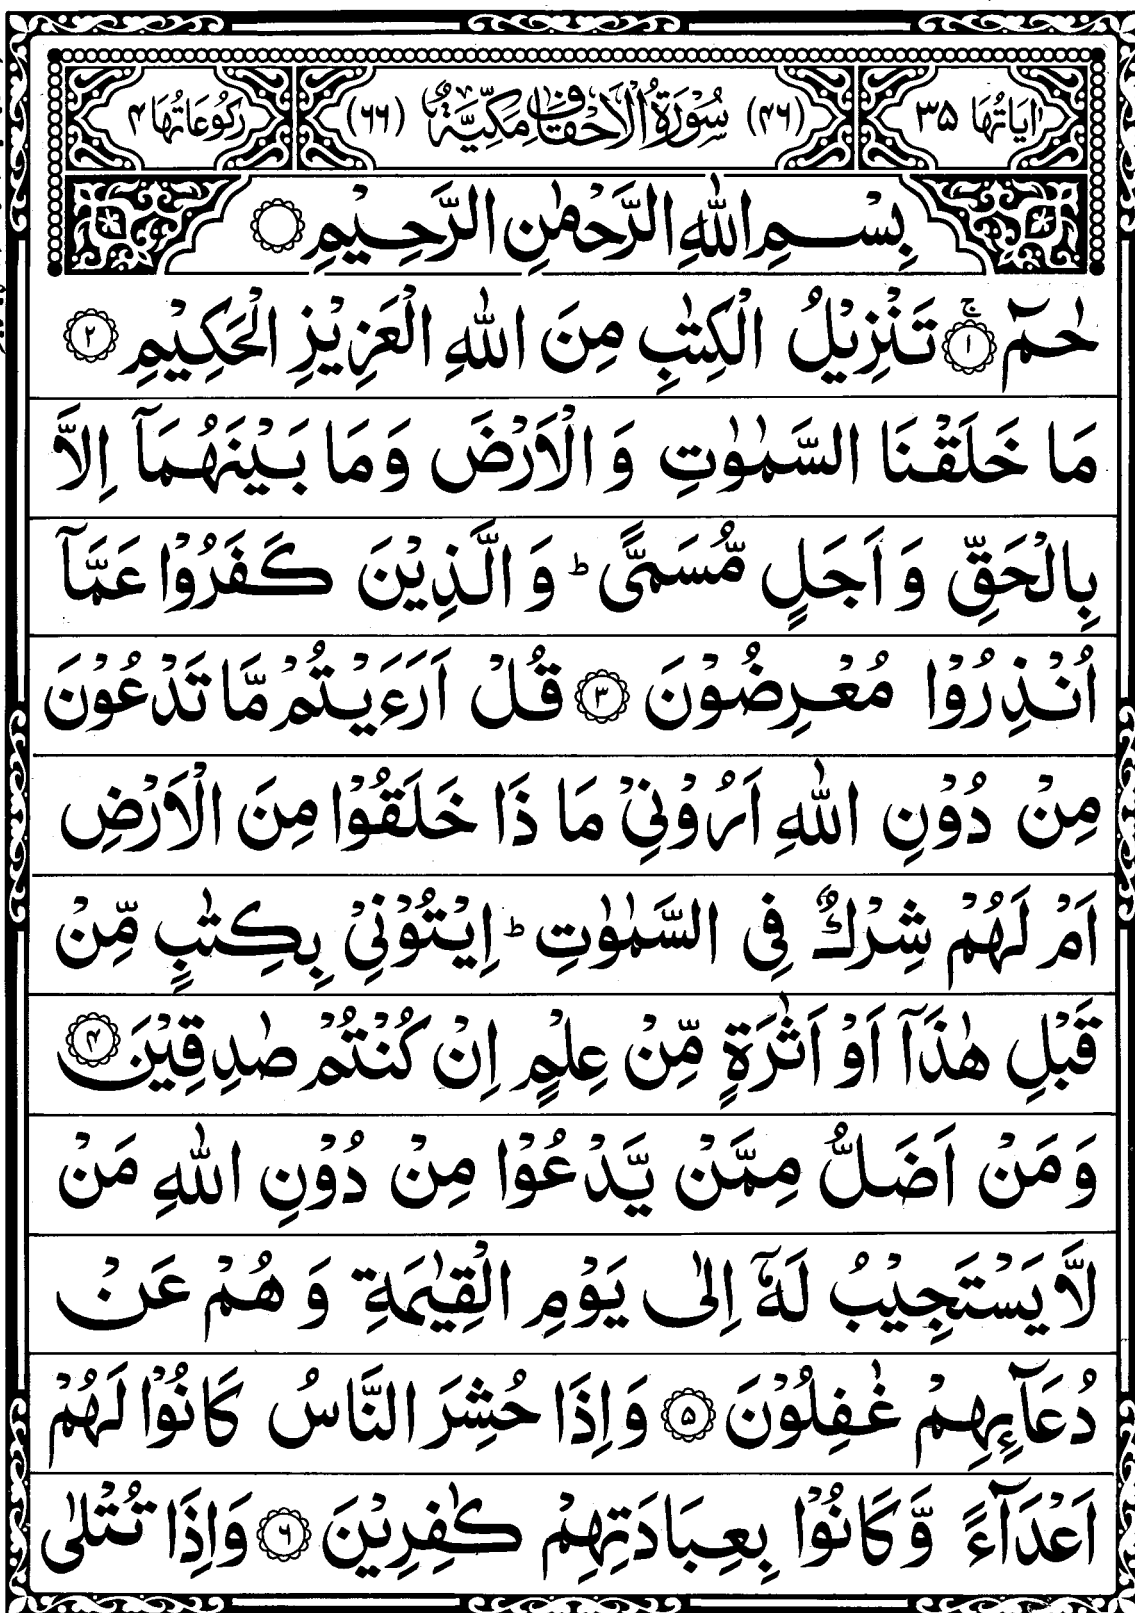 اٰيَاتُهَا ٣٥ (٤٦) سُوْرَةُ الْاَحْقَافِ مَكِّيَّةٌ (٦٦) رُكُوْعَاتُهَا ٤
بِسْمِ اللّٰهِ الرَّحْمٰنِ الرَّحِيْمِ
حٰمٓ ۚ ﴿١﴾ تَنْزِيْلُ الْكِتٰبِ مِنَ اللّٰهِ الْعَزِيْزِ الْحَكِيْمِ ﴿٢﴾
مَا خَلَقْنَا السَّمٰوٰتِ وَ الْاَرْضَ وَ مَا بَيْنَهُمَاۤ اِلَّا
بِالْحَقِّ وَ اَجَلٍ مُّسَمًّى ؕ وَ الَّذِيْنَ كَفَرُوْا عَمَّاۤ
اُنْذِرُوْا مُعْرِضُوْنَ ﴿٣﴾ قُلْ اَرَءَيْتُمْ مَّا تَدْعُوْنَ
مِنْ دُوْنِ اللّٰهِ اَرُوْنِيْ مَا ذَا خَلَقُوْا مِنَ الْاَرْضِ
اَمْ لَهُمْ شِرْكٌ فِي السَّمٰوٰتِ ؕ اِيْتُوْنِيْ بِكِتٰبٍ مِّنْ
قَبْلِ هٰذَاۤ اَوْ اَثٰرَةٍ مِّنْ عِلْمٍ اِنْ كُنْتُمْ صٰدِقِيْنَ ﴿٤﴾
وَ مَنْ اَضَلُّ مِمَّنْ يَّدْعُوْا مِنْ دُوْنِ اللّٰهِ مَنْ
لَّا يَسْتَجِيْبُ لَهٗۤ اِلٰى يَوْمِ الْقِيٰمَةِ وَ هُمْ عَنْ
دُعَآءِهِمْ غٰفِلُوْنَ ﴿٥﴾ وَ اِذَا حُشِرَ النَّاسُ كَانُوْا لَهُمْ
اَعْدَآءً وَّ كَانُوْا بِعِبَادَتِهِمْ كٰفِرِيْنَ ﴿٦﴾ وَ اِذَا تُتْلٰى